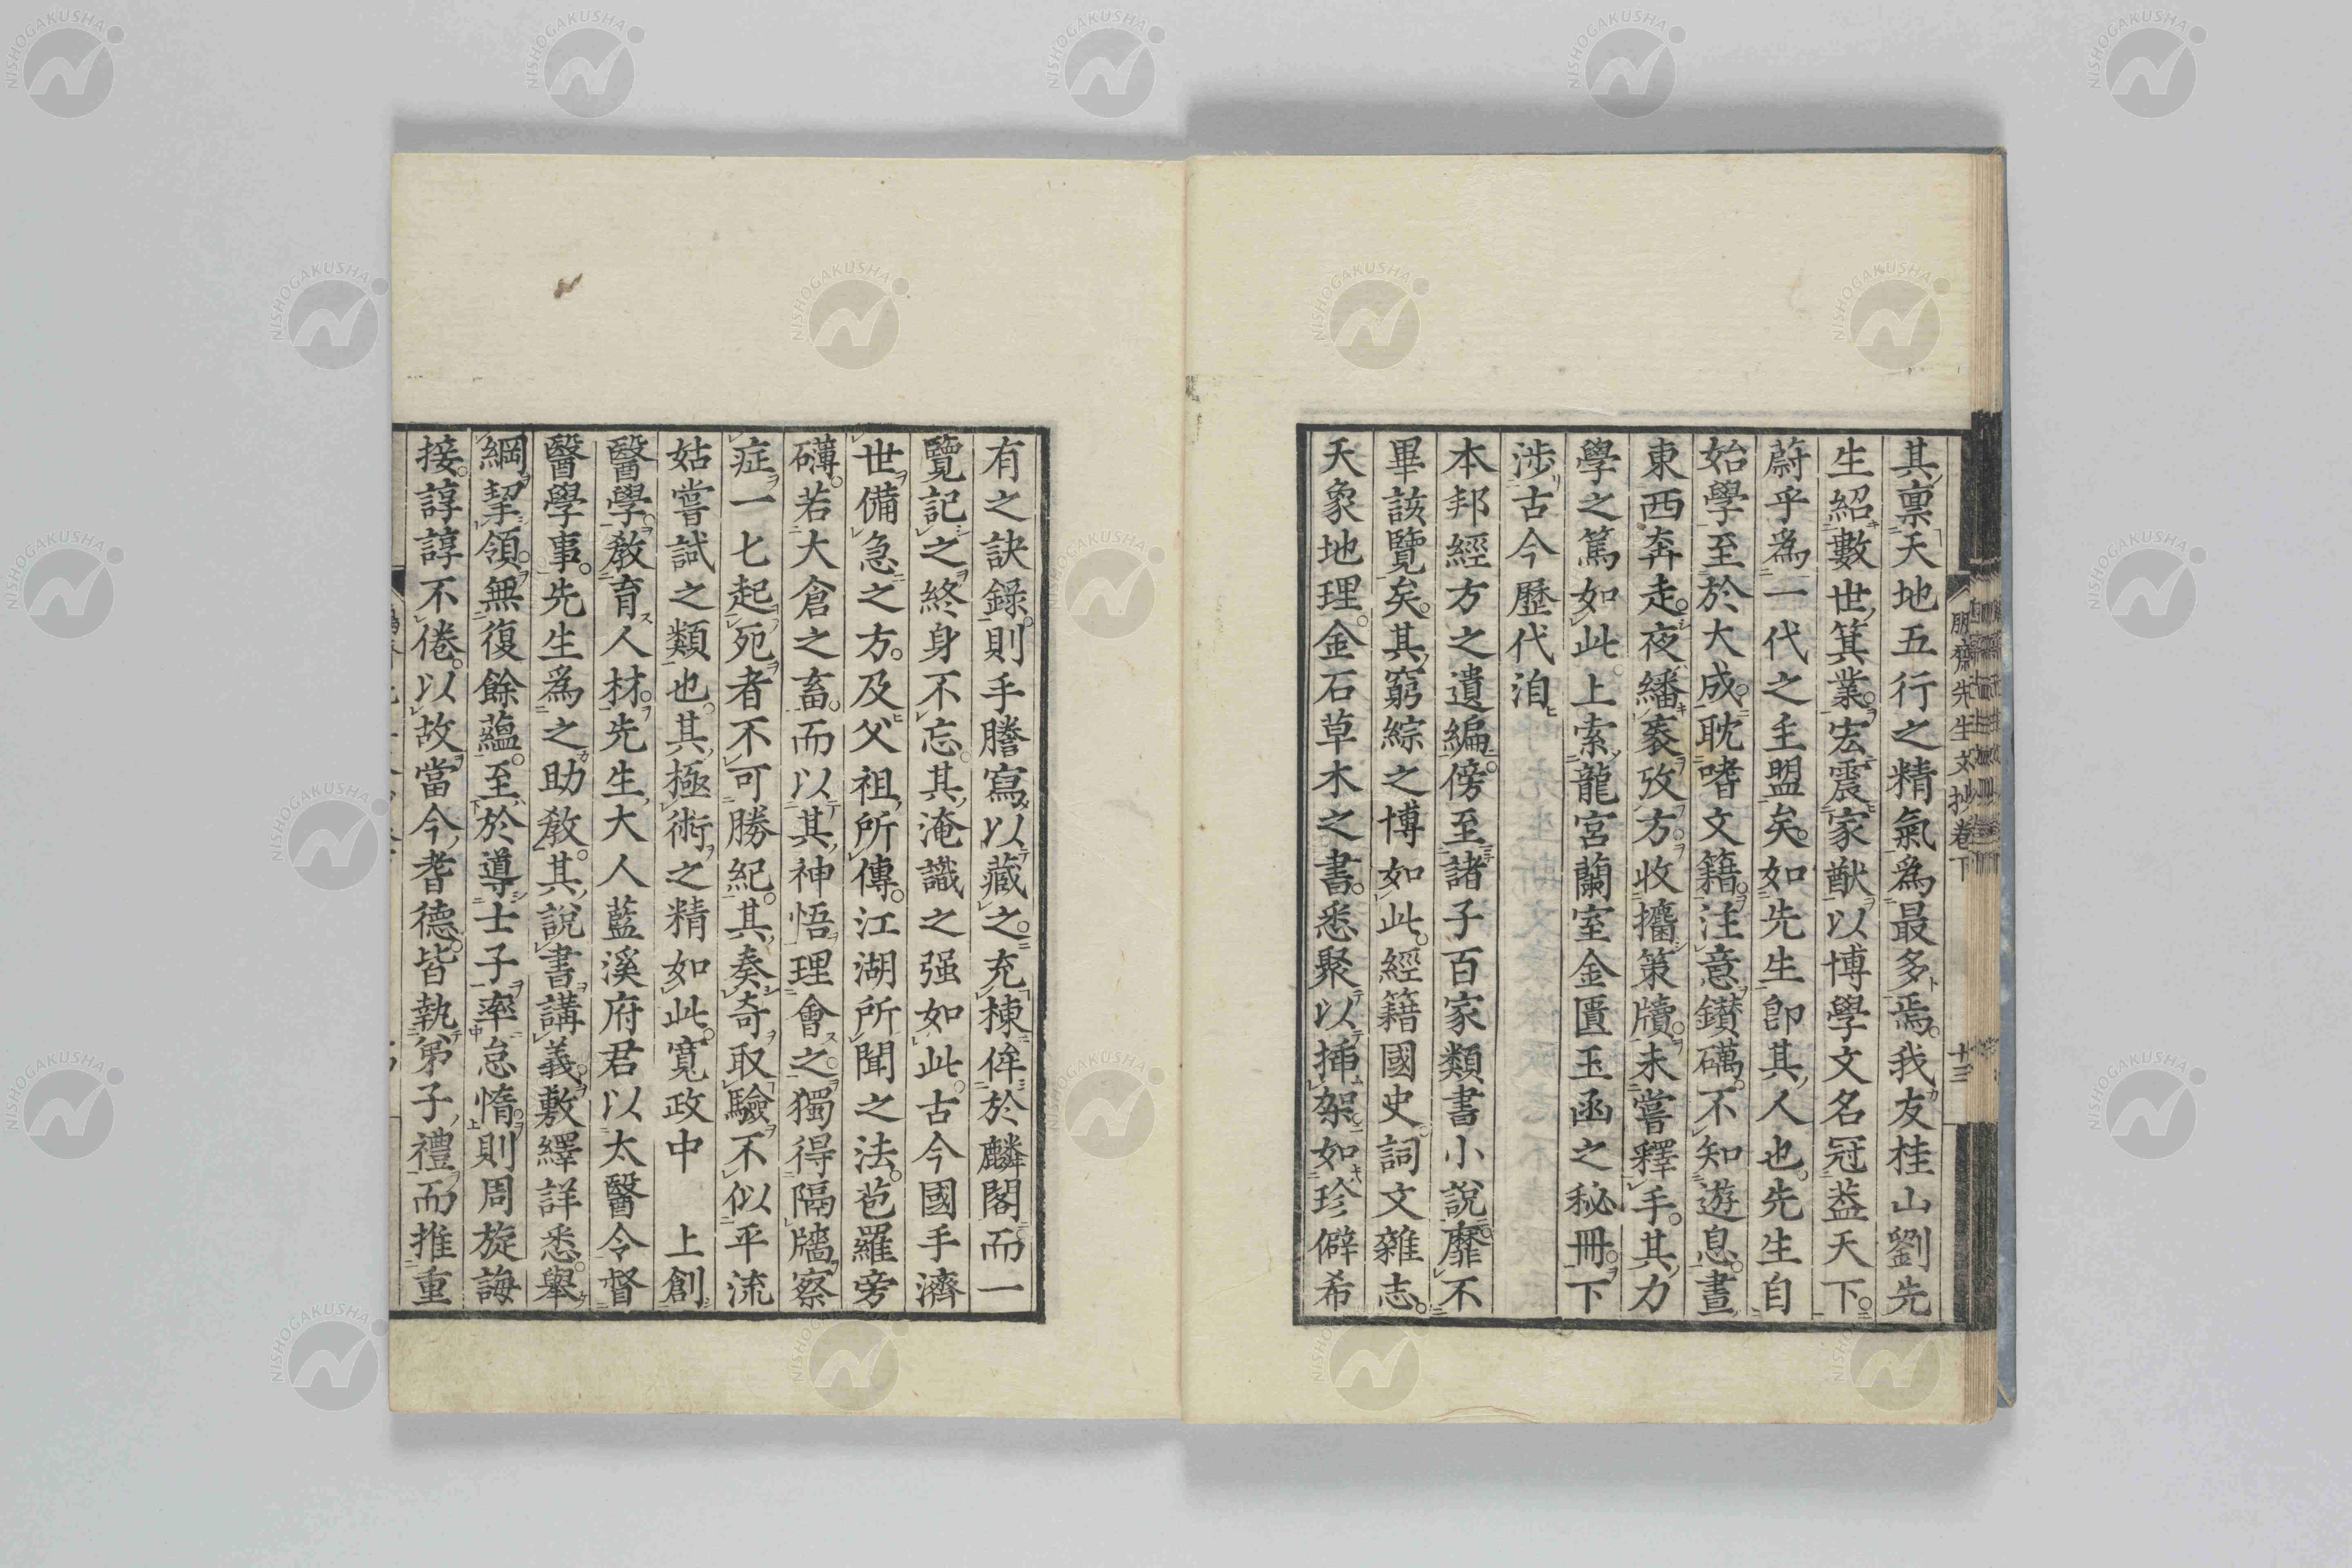 朋齋先生文抄卷下
十三
其稟天地五行之精氣爲最多焉。我友桂山劉先
生紹數世箕業。宏震家猷以博學文名冠蓋天下。
蔚乎爲一代之主盟矣。如先生卽其人也。先生自
始學至於大成。耽嗜文籍。注意鑚礪。不知遊息。晝
東西奔走。夜繙袠攷方。收攟策牘。未嘗釋手。其力
學之篤如此。上索龍宮蘭室金匱玉函之秘冊。下
涉古今歷代洎
本邦經方之遺編。傍至諸子百家類書小說。靡不
畢該覽矣。其窮綜之博如此。經籍國史。詞文雜志。
天象地理。金石草木之書。悉聚以揷架。如珍僻希
有之訣錄。則手謄寫以藏之。充棟侔於麟閣。而一
覽記之。終身不忘。其淹識之强如此。古今國手濟
世備急之方。及父祖所傳。江湖所聞之法。苞羅旁
礴。若大倉之畜。而以其神悟理會之。獨得隔牆察
症。一匕起死者不可勝紀。其奏奇取驗。不似平流
姑嘗試之類也。其極術之精如此。寬政中 上創
醫學。敎育人材。先生大人藍溪府君以太醫令督
醫學事。先生爲之助敎。其說書講義。敷繹詳悉。舉
綱挈領。無復餘蘊。至於導士子率怠惰。則周旋誨
接。諄諄不倦。以故當今耆德。皆執弟子禮而推重